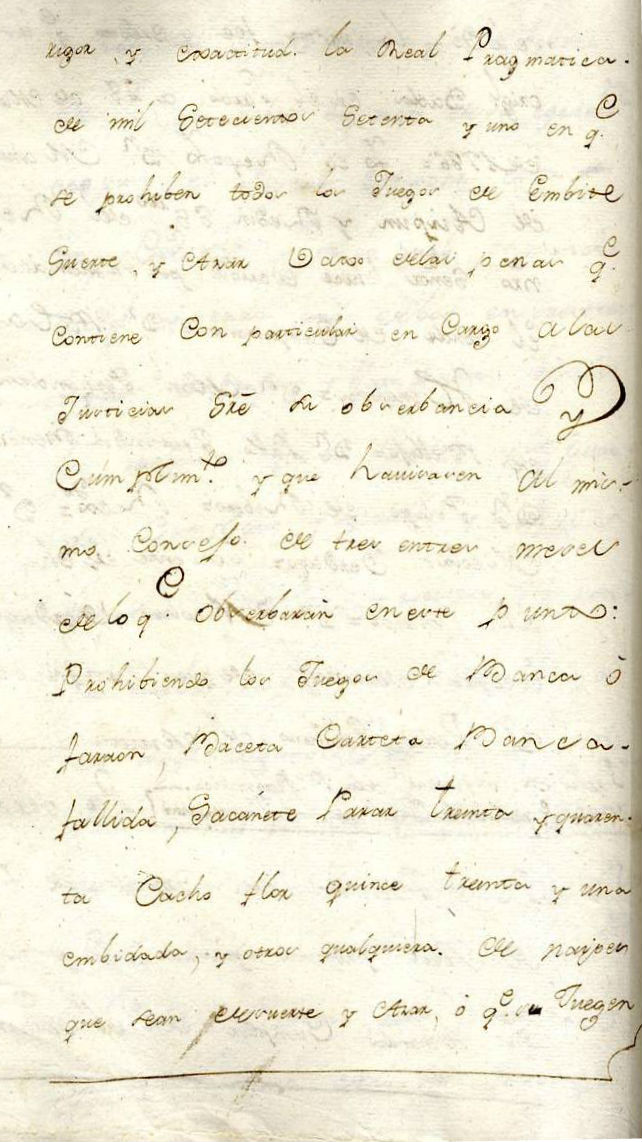 rigor, y exactitud. la Real Pragmatica.
de mil Setecientos Setenta y uno en q.e
se prohiben todos los Juegos de Embite
Suerte, y Azar Baxo delas penas q.e
contiene Con particular en Cargo alas
Justicias Sre su obserbancia y
Cumplim.to y que havisasen al mis-
mo Consejo. de tres entres meses
delo q.e Obserbaran eneste punto:
Prohibiendo los Juegos de Banca ó
faraon, Baceta Carteta Banca-
fallida, Sacanete Parar treinta y quaren-
ta Cacho flor quince treinta y una
embidada, y otros qualquiera. de naipes
que sean desuerte y Azar, ó q.e se Juegen